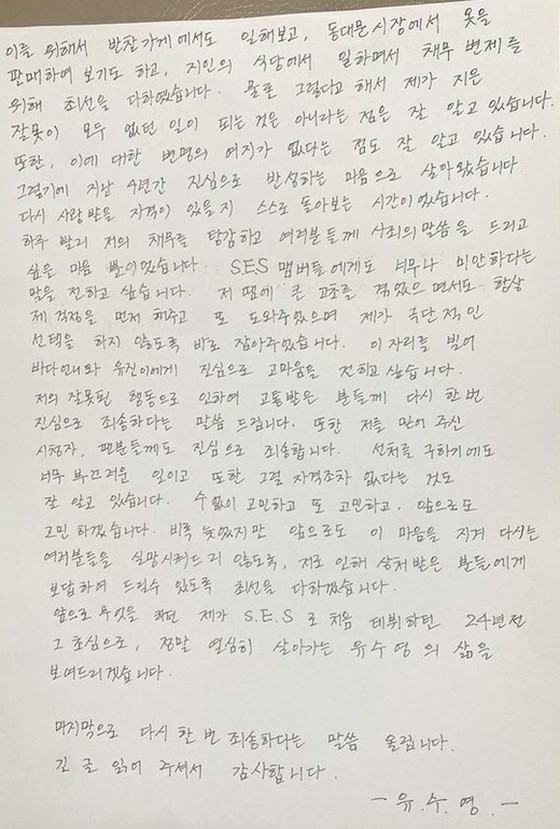 이를 위해서 반찬가게에서도 일해보고, 동대문시장에서 옷을
판매하며 보기도 하고, 지인의 식당에서 일하면서 채무 변제를
위해 최선을 다하였습니다. 물론 그렇다고 해서 제가 지은
잘못이 모두 없던 일이 되는 것은 아니라는 점은 잘 알고 있습니다.
또한, 이에 대한 변명의 여지가 없다는 점도 잘 알고 있습니다.
그렇기에 지난 4년간 진심으로 반성하는 마음으로 살아왔습니다
다시 사랑받을 자격이 있을지 스스로 돌아보는 시간이었습니다.
하루 빨리 저의 채무를 탕감하고 여러분들께 사죄의 말씀을 드리고
싶은 마음 뿐이었습니다. S.E.S 맴버들에게도 너무나 미안하다는
말을 전하고 싶습니다. 저 땜에 큰 고초를 겪었으면서도 항상
제 걱정을 먼저 해주고 또 도와주었으며 제가 극단적인
선택을 하지 않도록 바로 잡아주었습니다. 이 자리를 빌어
바다언니와 유진이에게 진심으로 고마움을 전하고 싶습니다.
저의 잘못된 행동으로 인하여 고통받은 분들께 다시 한번
진심으로 죄송하다는 말씀 드립니다. 또한 저를 믿어 주신
시청자, 팬분들께도 진심으로 죄송합니다. 선처를 구하기에도
너무 부끄러운 일이고 또한 그럴 자격조차 없다는 것도
잘 알고 있습니다. 수없이 고민하고 또 고민하고, 앞으로도
고민 하겠습니다. 비록 늦었지만 앞으로도 이 마음을 지켜 다시는
여러분들을 실망시켜드리 않도록, 저로 인해 상처받은 분들에게
보답하여 드릴수 있도록 최선을 다하겠습니다.
앞으로 무엇을 하던 제가 S.E.S로 처음 데뷔하던 24년전
그 초심으로, 정말 열심히 살아가는 유수영의 삶을
보여드리겠습니다.
마지막으로 다시 한 번 죄송하다는 말씀 올립니다.
긴 글 읽어 주셔서 감사합니다.
- 유.수.영. -